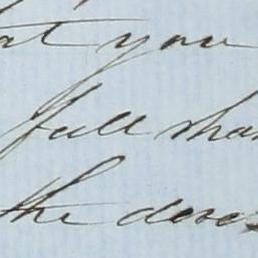 at you
full shar
the dere